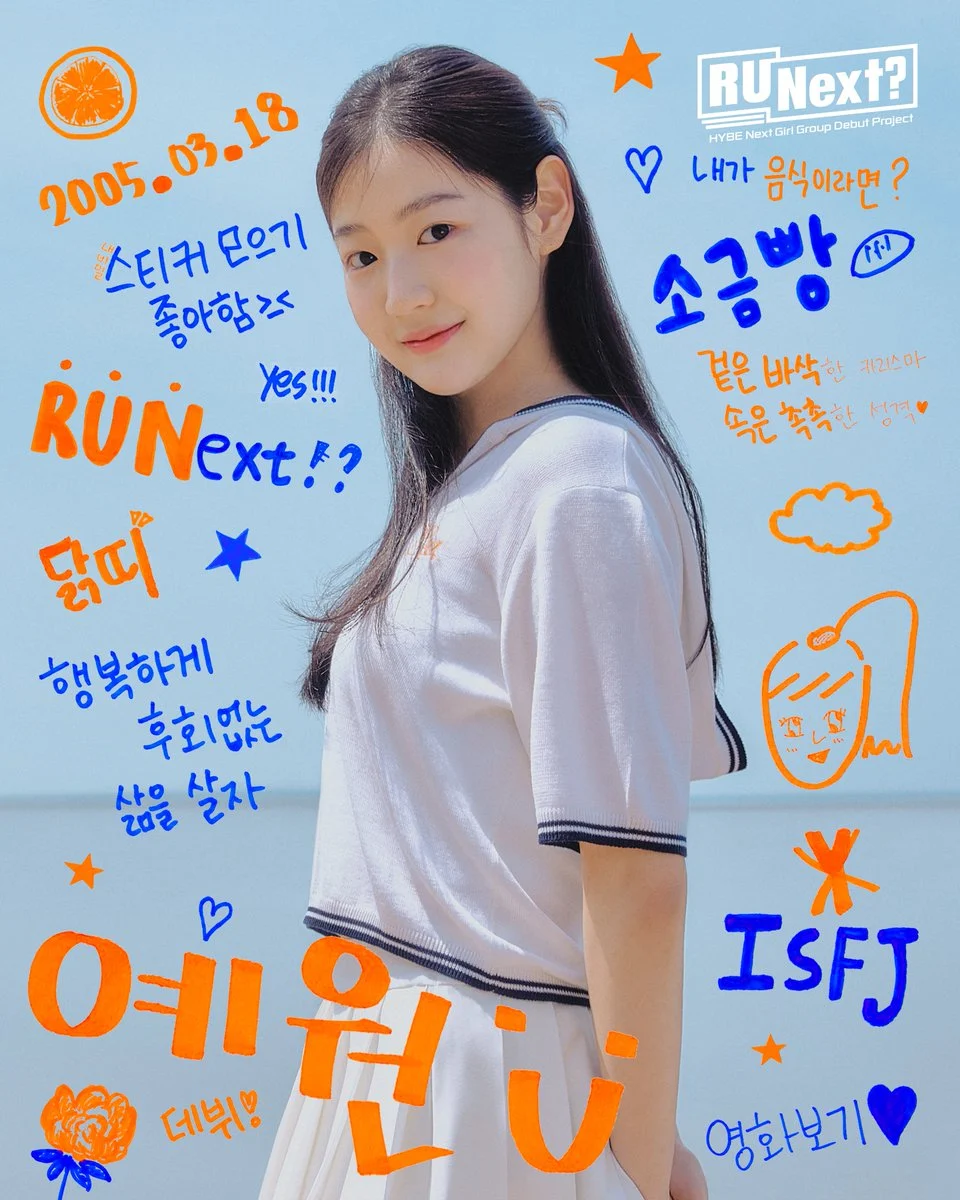 RUNext?
HYBE Next Girl Group Debut Project
2005.03.18
스티커 모으기
좋아함 ><
Yes!!!
RUNext!?
닭띠
행복하게
후회없는
삶을 살자
예원
데뷔!
내가 음식이라면?
소금빵
겉은 바삭한 카리스마
속은 촉촉한 성격♥
ISFJ
영화보기